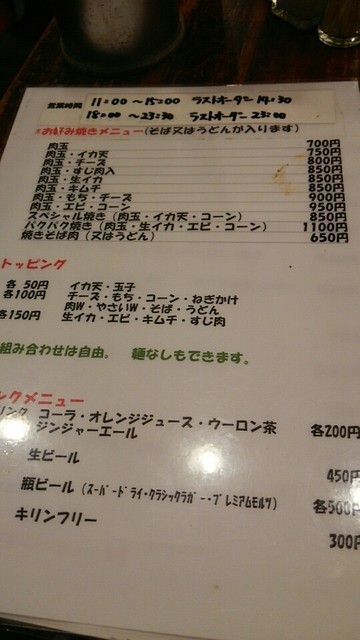 営業時間 11:00～15:00 ラストオーダー 14:30
18:00～23:30 ラストオーダー 23:00
*お好み焼きメニュー(そば又はうどんが入ります)
肉玉 700円
肉玉・イカ天 750円
肉玉・チーズ 800円
肉玉・すじ肉入 850円
肉玉・生イカ 850円
肉玉・キムチ 850円
肉玉・もち・チーズ 900円
肉玉・エビ・コーン 950円
スペシャル焼き(肉玉・イカ天・コーン) 850円
パクパク焼き(肉玉・生イカ・エビ・コーン) 1100円
焼きそば肉(又はうどん) 650円
トッピング
各 50円 イカ天・玉子
各100円 チーズ・もち・コーン・ねぎかけ
肉W・やさいW・そば・うどん
各150円 生イカ・エビ・キムチ・すじ肉
組み合わせは自由。 麺なしもできます。
ンクメニュー
リンク コーラ・オレンジジュース・ウーロン茶 各200円
ジンジャーエール
生ビール 450円
瓶ビール(スーパードライ・クラシックラガー・プレミアムモルツ) 各500円
キリンフリー 300円